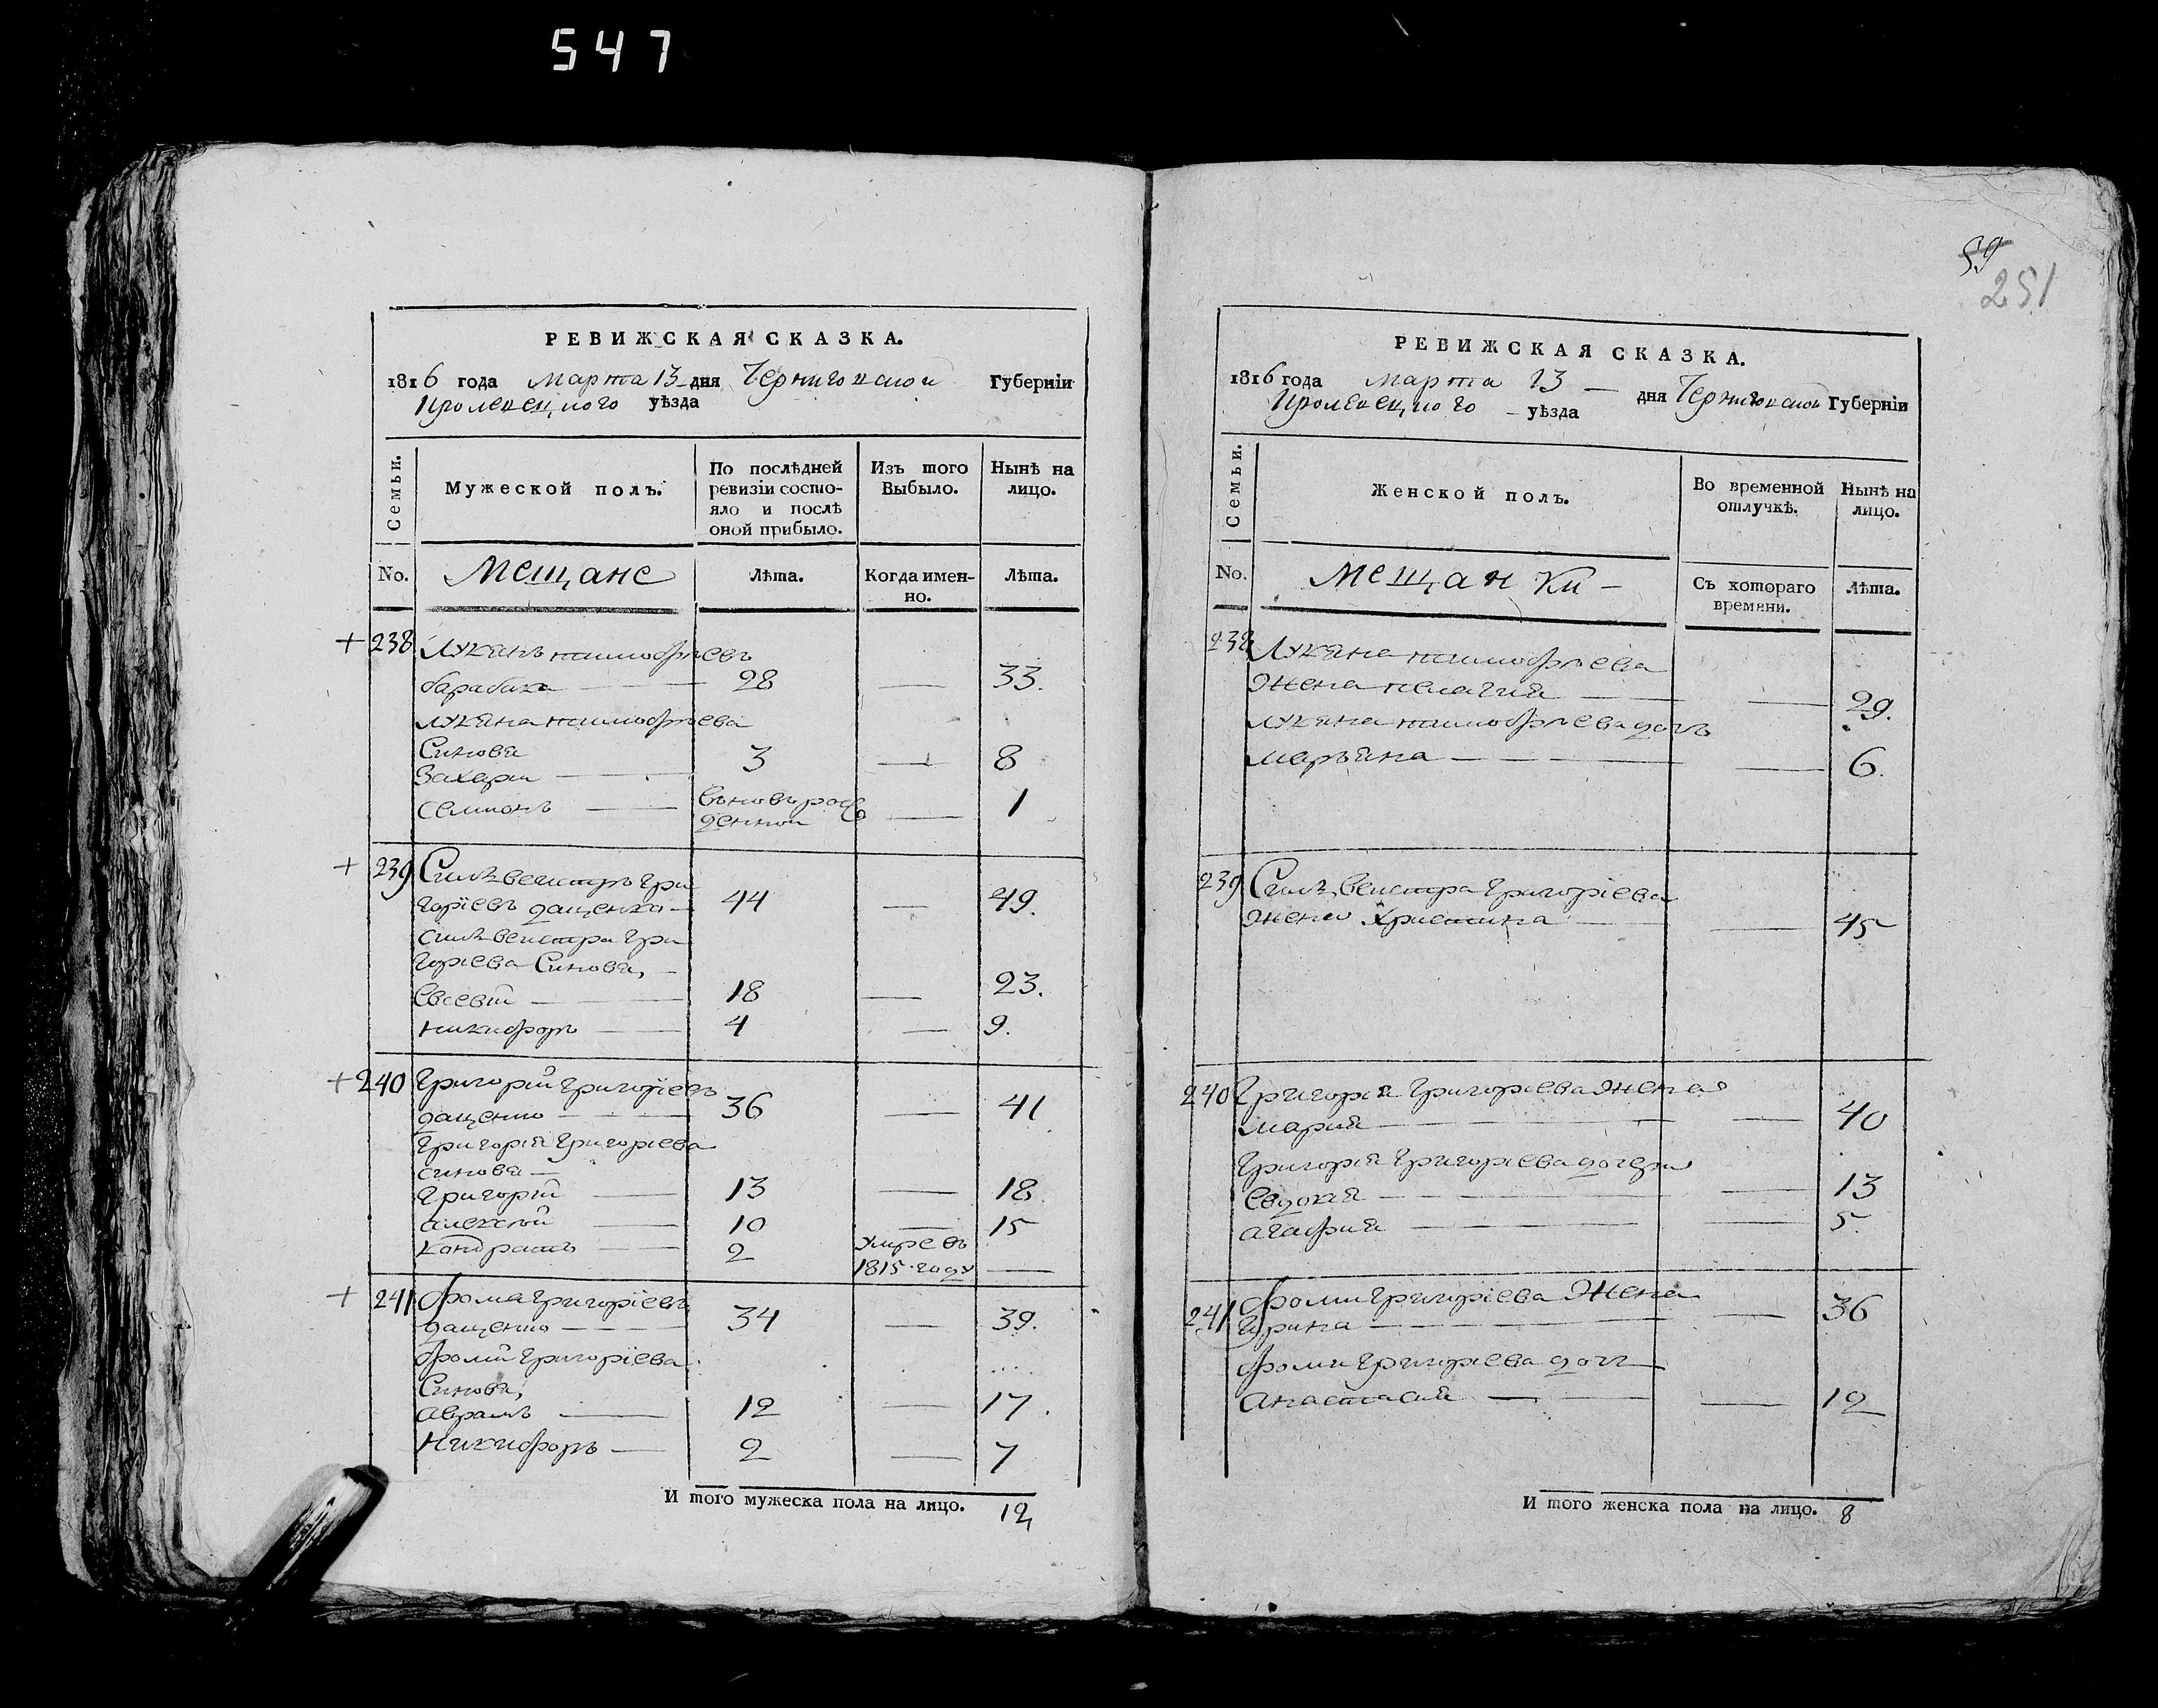 547
59
251
РЕВИЖСКАЯ СКАЗКА.
1816 года Марта 13 дня Черниговской Губерніи
Кролевецкого уѣзда
Семьи.
Мужеской полъ.
По послѣдней ревизіи состо-
яло и послѣ
оной прибыло.
Изъ того
Выбыло.
Нынѣ на
лицо.
No.
Мещане
Лѣта.
Когда имен-
но.
Лѣта.
238 Лукянъ тимофѣевъ
барабаха 28 — 33.
лукяна тимофѣева
Синовя
Захари 3 — 8
семионъ вьновь рож
денной — 1
239 Силвестръ Гри
горіевъ дащенко 44 — 49.
силвестра Гри
горіева Синовя,
Евсевій 18 — 23.
никифоръ 4 — 9.
240 Григорій Григоріевъ
дащенко 36 — 41
Григорія Григоріева
синовя
Григорій 13 — 18.
алексѣй 10 — 15
кондратъ 2 умре въ
1815 году —
241 Фома Григоріевъ
дащенко 34 — 39.
Фоми Григоріева
Синовя,
аврамъ 12 — 17.
Никифоръ 2 — 7
И того мужеска пола на лицо. 12
РЕВИЖСКАЯ СКАЗКА.
1816 года Марта 13 — дня Черниговской Губерніи
Кролевецкого уѣзда
Семьи.
Женской полъ.
Во временной
отлучкѣ.
Нынѣ на
лицо.
No.
Мещанки
Съ котораго
времяни.
Лѣта.
238 Лукяна тимофѣева
жена пелагия — 29.
лукяна тимофѣева дочь
марьяна — 6.
239 Силвестра Григоріева
жена Христина — 45
240 Григорія Григоріева жена
мария — 40
Григорія Григоріева дочери
Евдокия — 13
агафия — 5.
241 Фоми Григоріева Жена
Ирина — 36
Фоми Григоріева доч
анастасия — 12
И того женска пола на лицо. 8